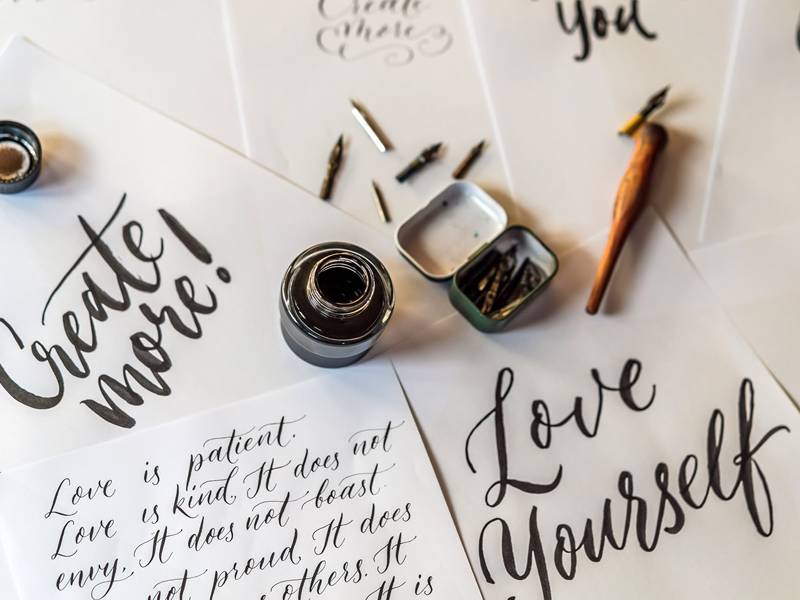 Create
more
you
Create
more!
Love is patient.
Love is kind. It does not
envy, It does not boast.
not proud. It does
others. It
It is
Love
Yourself